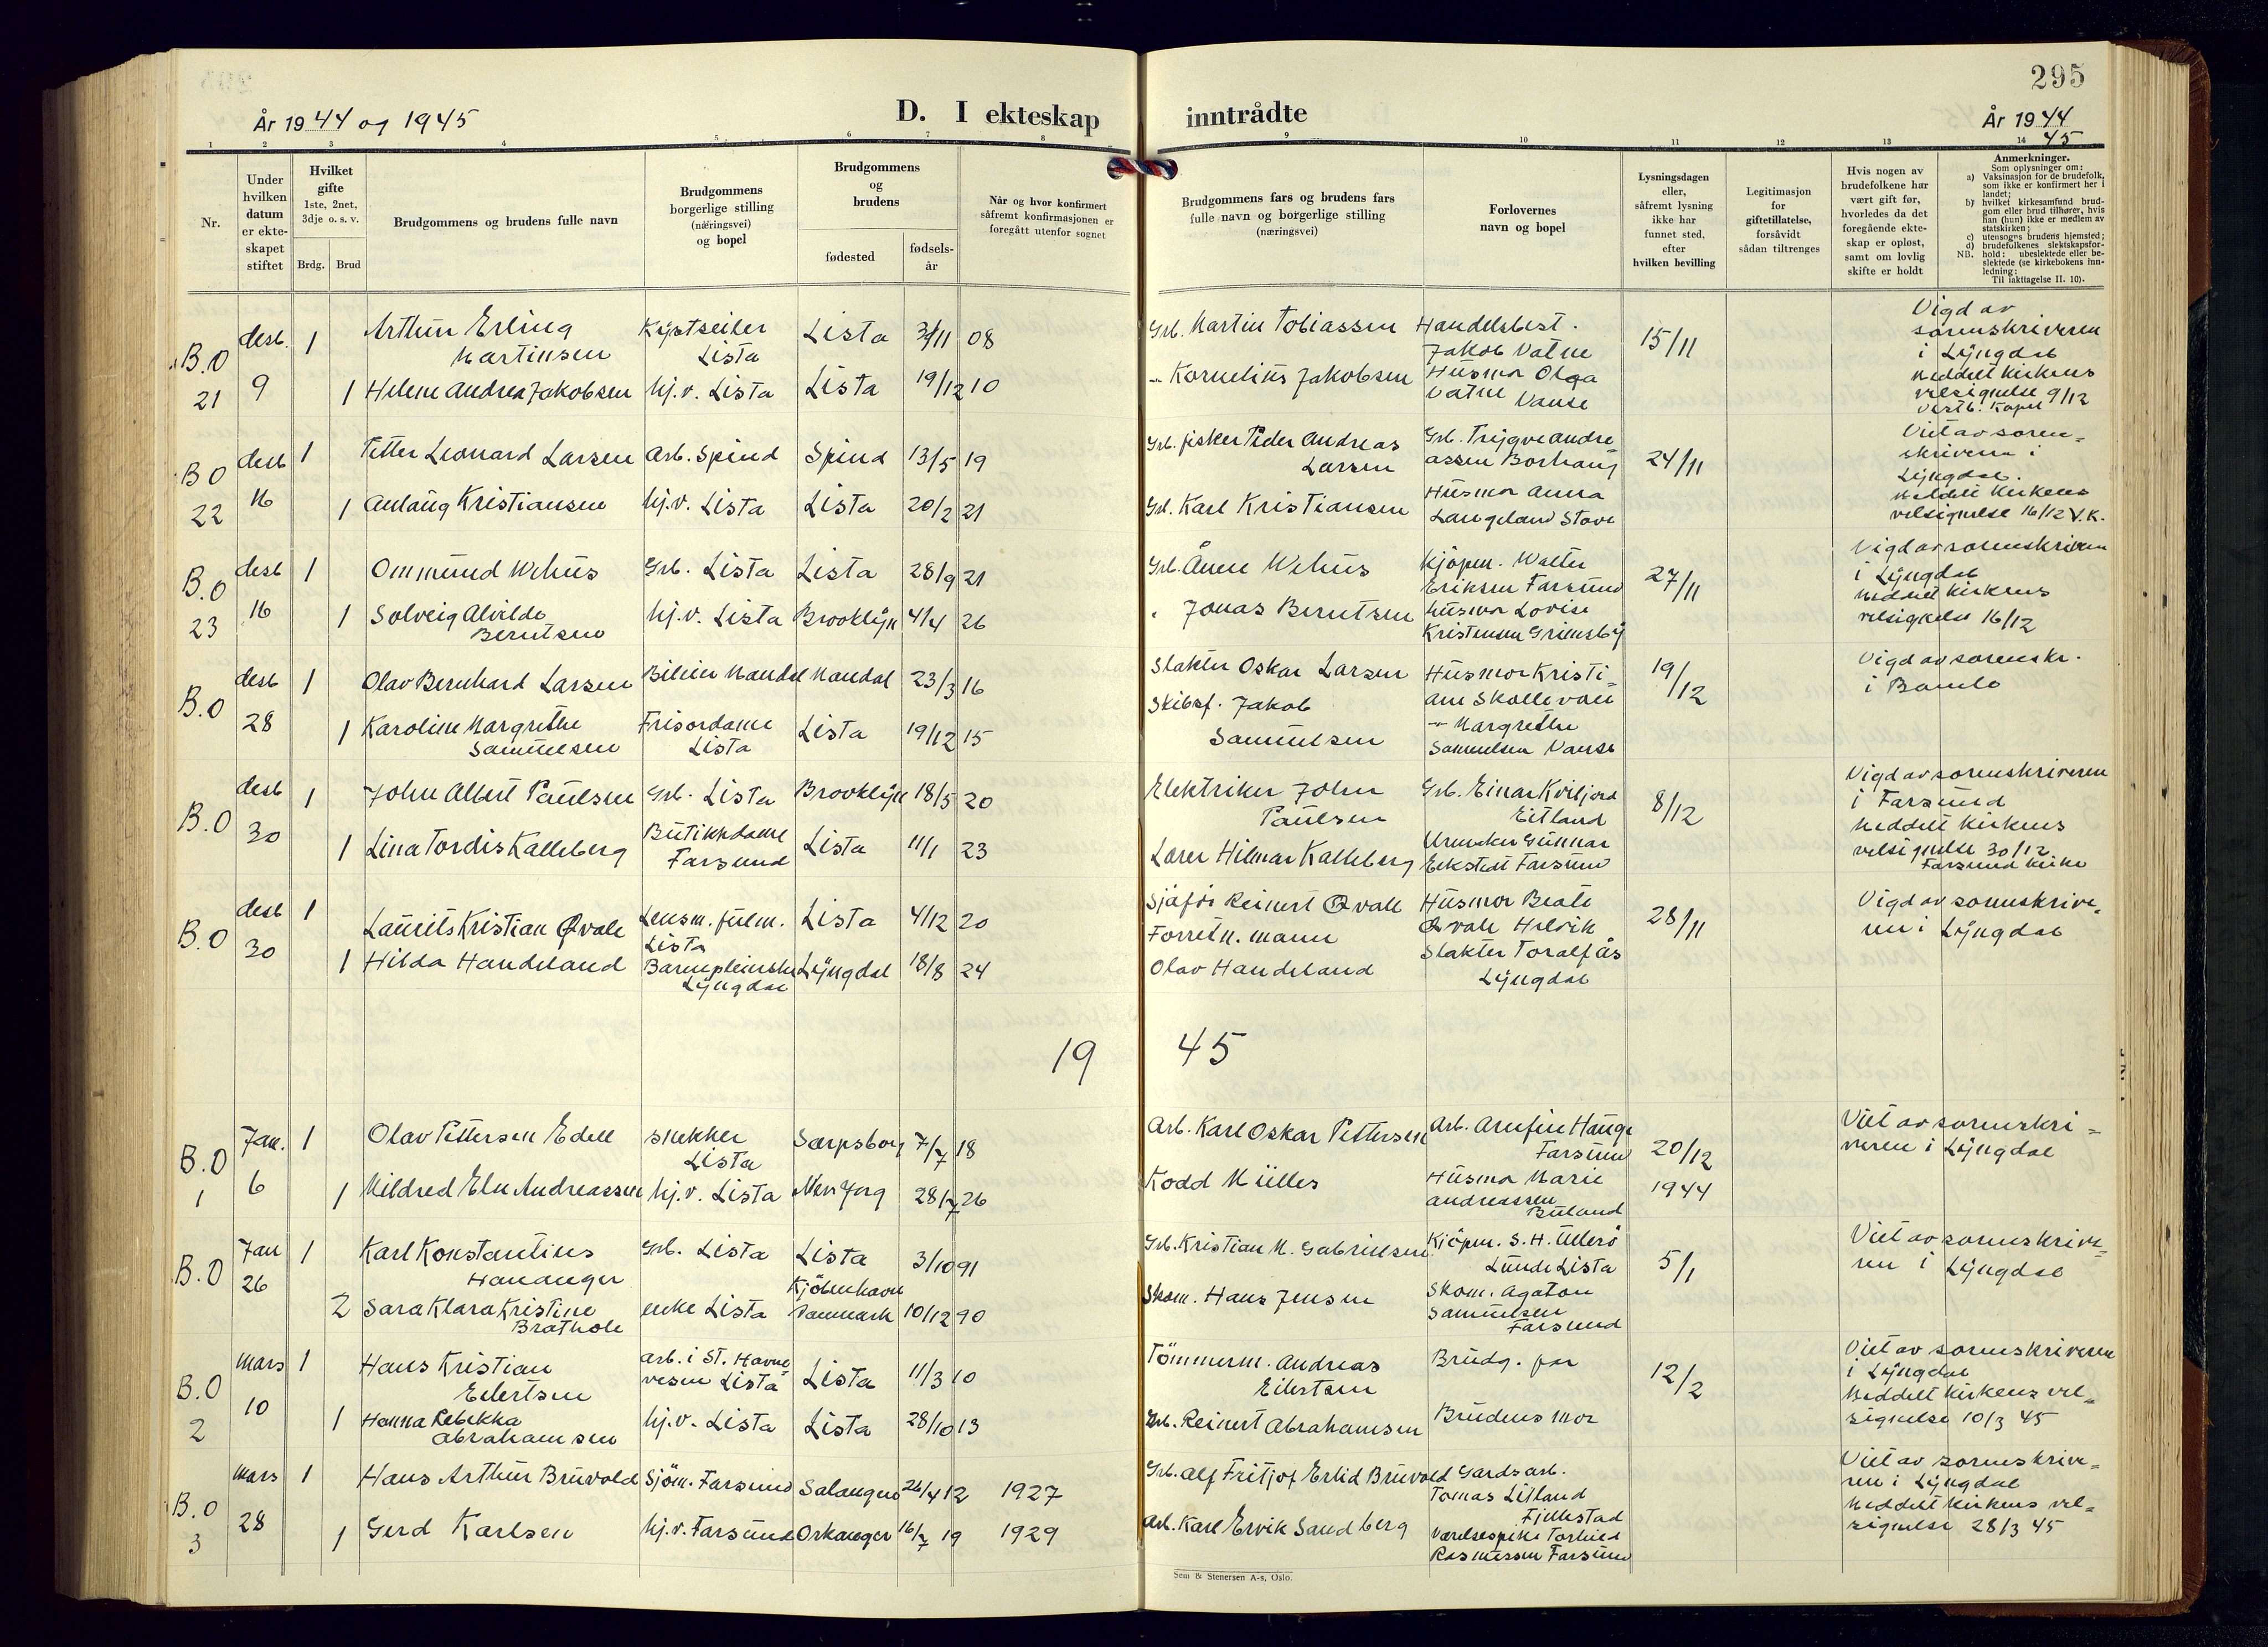 295
År 1944 og 1945
D. I ekteskap
inntrådte
År 1944
45
1 2 3 4 5 6 7 8 9 10 11 12 13 14
Nr.
Under
hvilken
datum
er ekte-
skapet
stiftet
Hvilket
gifte
1ste, 2net,
3dje o. s. v.
Brdg. Brud
Brudgommens og brudens fulle navn
Brudgommens
borgerlige stilling
(næringsvei)
og bopel
Brudgommens
og
brudens
fødested
fødsels-
år
Når og hvor konfirmert
såfremt konfirmasjonen er
foregått utenfor sognet
Brudgommens fars og brudens fars
fulle navn og borgerlige stilling
(næringsvei)
Forlovernes
navn og bopel
Lysningsdagen
eller,
såfremt lysning
ikke har
funnet sted,
efter
hvilken bevilling
Legitimasjon
for
giftetillatelse,
forsåvidt
sådan tiltrenges
Hvis nogen av
brudefolkene har
vært gift før,
hvorledes da det
foregående ekte-
skap er opløst,
samt om lovlig
skifte er holdt
Anmerkninger.
Som oplysninger om:
a) Vaksinasjon for de brudefolk,
som ikke er konfirmert her i
landet;
b) hvilket kirkesamfund brud-
gom eller brud tilhører, hvis
han (hun) ikke er medlem av
statskirken;
c) utensogns brudens hjemsted;
d) brudefolkenes slektskapsfor-
hold: ubeslektede eller be-
slektede (se kirkebokens inn-
ledning:
NB.
Til iakttagelse II. 10).
B.O 21
desb. 9
1 Arthur Erling
Martinsen
Kystseiler
Lista
Lista
08
Grb. Martin Tobiassen
Handelsbest.
Jakob Vatne
15/11
1 Helene Andrea Jakobsen
hj.v. Lista
Lista 19/12 10
" Kornelius Jakobsen
Husmor Olga
Vatne Vanse
Vigd av
sorenskriveren
i Lyngdal
meddelt kirkens
velsignelse 9/12
Vestb. Kapel
B O 22
desb 16
1 Petter Leonard Larsen
Arb. Spind
Spind 13/5 19
Grb. fisker Peder Andreas
Larsen
Grb. Trygve Andre
assen Borhaug
24/11
1 Anlaug Kristiansen
hj.v. Lista
Lista 20/2 21
Grb. Karl Kristiansen
Husmor Anna
Langeland Stave
Viet av soren=
skriveren i
Lyngdal.
meddelt kirkens
velsignelse 16/12 V.K.
B.O 23
desb 16
1 Ommund Wehus
Grb. Lista
Lista 28/9 21
Grb. Ånen Wehus
Kjöpm. Walter
Eriksen Farsund
27/11
1 Solveig Alvilde
Berntsen
hj.v. Lista
Brooklyn 4/4 26
" Jonas Berntsen
husmor Lovise
Kristensen Grimsby
Vigd av sorenskriveren
i Lyngdal
meddelt kirkens
velsignelse 16/12
B.O
desb 28
1 Olav Bernhard Larsen
Bileier Mandal
Mandal 23/3 16
Slakter Oskar Larsen
Husmor Kristi=
ane Skollevoll
19/12
1 Karoline Margrethe
Samuelsen
Frisordame
Lista
Lista 19/12 15
Skibsf. Jakob
Samuelsen
" Margrethe
Samuelsen Vanse
Vigd av sorenskr.
i Bamle
B.O
desb 30
1 John Albert Paulsen
Grb. Lista
Brooklyn 18/5 20
Elektriker John
Paulsen
Grb. Einar Kviljord
Eitland
8/12
1 Lina Tordis Kalleberg
Butikkdame
Farsund
Lista 11/1 23
Lærer Hilmar Kalleberg
Urmaker Gunnar
Eckstedt Farsund
Vigd av sorenskriveren
i Farsund
Meddelt kirkens
velsignelse 30/12
Farsund kirke
B.O
desb 30
1 Laurits Kristian Qvale
Lensm. fulm.
Lista
Lista 4/12 20
Sjåfør Reinert Qvale
Husmor Beate
Qvale Helvik
28/11
1 Hilda Handeland
Barnepleierske
Lyngdal
Lyngdal 18/8 24
Forretn. mann
Olav Handeland
Slakter Toralf Ås
Lyngdal
Vigd av sorenskrive=
ren i Lyngdal
19 45
B.O 1
Jan. 6
1 Olav Pettersen Edell
snekker
Lista
Sarpsborg 7/7 18
Arb. Karl Oskar Pettersen
Arb. Arnfin Hauge
Farsund
20/12
1944
1 Mildred Eln Andreassen
hj.v. Lista
New Jorg 28/7 26
Kodd Mülles
Husmor Marie
Andreassen
Buland
Viet av sorenskri=
veren i Lyngdal
B.O
Jan 26
1 Karl Konstantius
Hananger
Grb. Lista
Lista 3/10 91
Grb. Kristian M. Gabrielsen
Kjöpm. S. H. Ullerö
Lunde Lista
5/1
2 Sara Klara Kristine
Brathole
enke Lista
Kjöbenhavn
Danmark 10/12 90
Skom. Hans Jensen
Skom. Agaton
Samuelsen
Farsund
Viet av sorenskrive=
ren i Lyngdal
B.O 2
mars 10
1 Hans Kristian
Eilertsen
Arb. i St. Havne
vesen Lista
Lista 11/3 10
Tömmerm. Andreas
Eilertsen
Brudg. far
12/2
1 Hanna Rebekka
Abrahamsen
hj.v. Lista
Lista 28/10 13
Grb. Reinert Abrahamsen
Brudens mor
Viet av sorenskriveren
i Lyngdal
Meddelt kirkens vel=
signelse 10/3 45
B.O 3
mars 28
1 Hans Arthur Bruvold
Sjöm. Farsund
Salangen 26/4 12
1927
Grb. Alf Fritjof Erlid Bruvold
Gardsarb.
Tomas Litland
Fjellestad
1 Gerd Karlsen
hj.v. Farsund
Orkanger 16/7 19
1929
Arb. Karl Ervik Sandberg
Værelsespike Torhild
Rasmussen Farsund
Viet av sorenskrive=
ren i Lyngdal
Meddelt kirkens vel=
signelse 28/3 45
Sem & Stenersen A-s, Oslo.